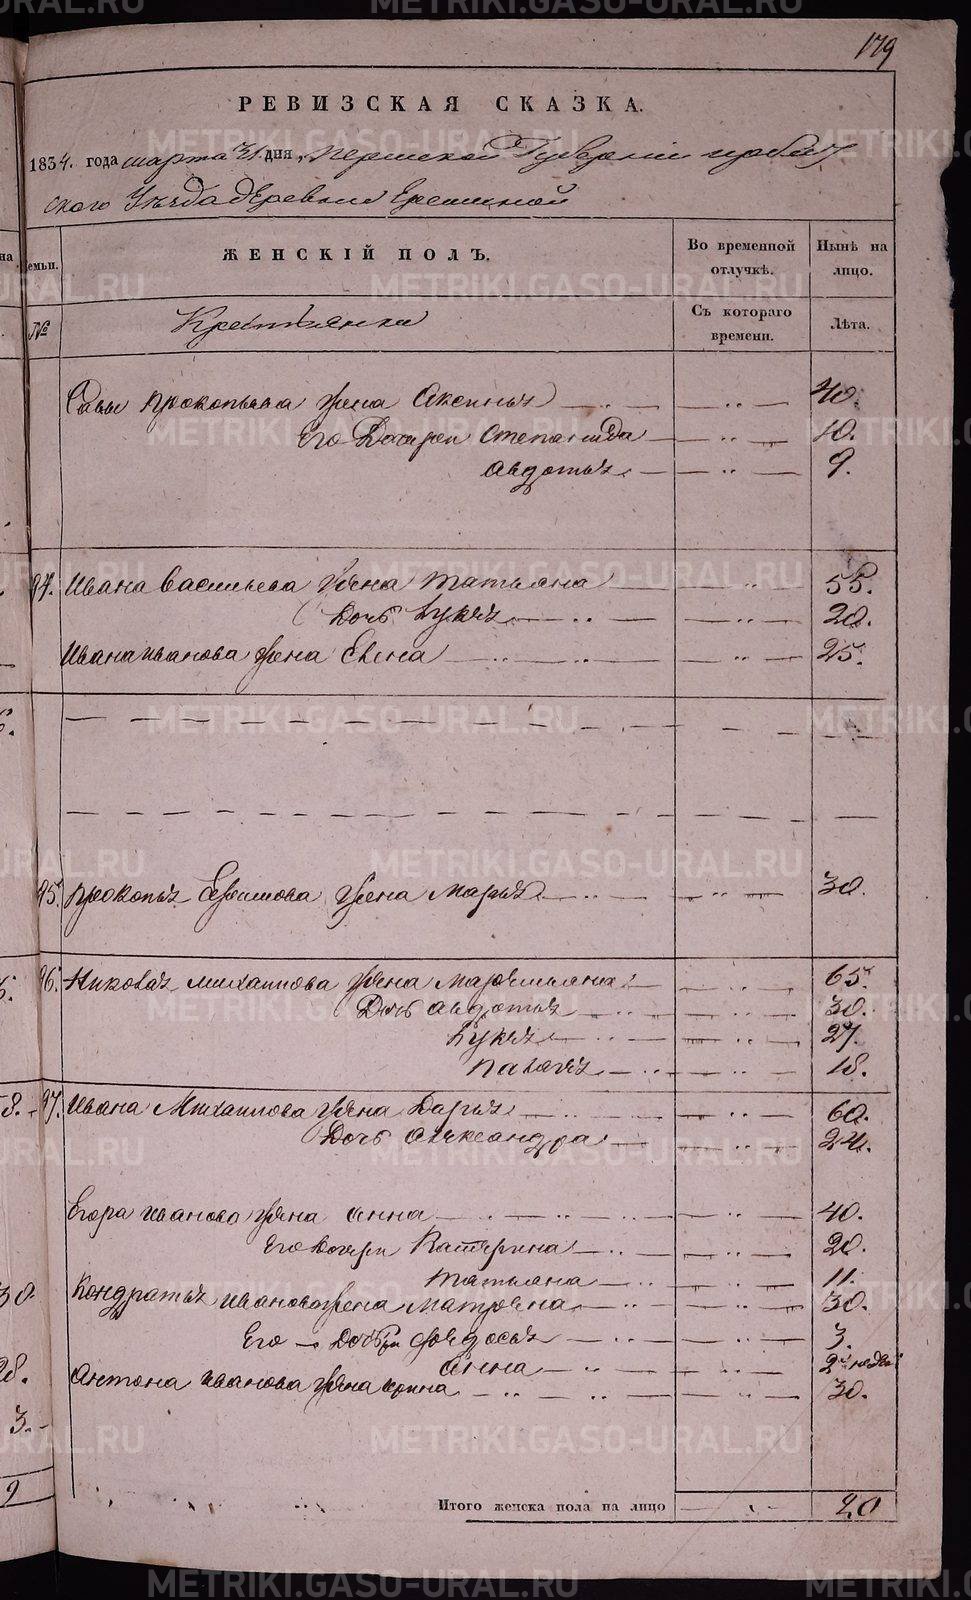 179
РЕВИЗСКАЯ СКАЗКА.
1834. года марта 31 дня, Пермской Губернии ирбит
ского Уезда деревни Ереминой
Семьи. ЖЕНСКІЙ ПОЛЪ. Во временной отлучкѣ. Нынѣ на лицо.
№ Крестьянки Съ котораго времени. Лѣта.
Савы Прокопьева жена Аксинья 40.
Его Дочери Степанида 10.
Авдотья 9.
94. Ивана Васильева жена Татьяна 55.
Дочь Лукья 20.
Ивана Иванова жена Елена 25.
95. Прокопья жена Марья 30.
96. Николая Михаилова жена Маремьяна 65.
Дочь Авдотья 30.
Лукья 27.
Палагея 18.
97. Ивана Михаилова жена Дарья 60.
Дочь Александра 24.
Егора Иванова жена Анна 40.
Его Дочери Катерина 20.
Татьяна 11.
Кондратья Иванова жена Матрена 30.
Его Дочери Федосья 3.
Анна 2 недел
Антона Иванова жена Ирина 30.
Итого женска пола на лицо 20
METRIKI.GASO-URAL.RU